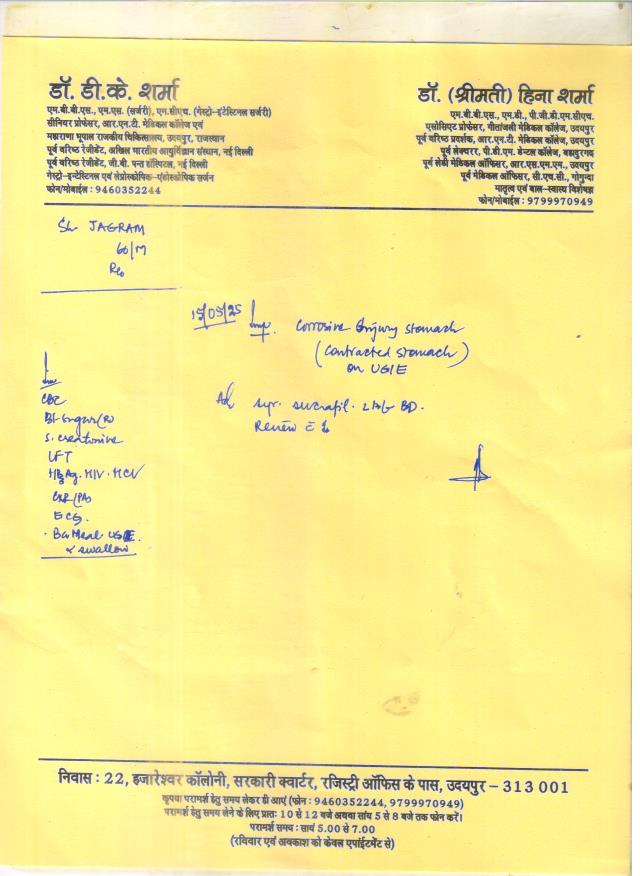 डॉ. डी.के. शर्मा
एम.बी.बी.एस., एम.एस. (सर्जरी), एम.सीएच. (गेस्ट्रो-इंटेस्टिनल सर्जरी)
सीनियर प्रोफेसर, आर.एन.टी. मेडिकल कॉलेज एवं
महाराणा भूपाल राजकीय चिकित्सालय, उदयपुर, राजस्थान
पूर्व वरिष्ठ रेजीडेंट, अखिल भारतीय आयुर्विज्ञान संस्थान, नई दिल्ली
पूर्व वरिष्ठ रेजीडेंट, जी.बी. पन्त हॉस्पिटल, नई दिल्ली
गेस्ट्रो-इन्टेस्टिनल एवं लेप्रोस्कोपिक-एंडोस्कोपिक सर्जन
फोन/मोबाईल : 9460352244
डॉ. (श्रीमती) हिना शर्मा
एम.बी.बी.एस., एम.डी., पी.जी.डी.एम.सीएच.
एसोसिएट प्रोफेसर, गीतांजली मेडिकल कॉलेज, उदयपुर
पूर्व वरिष्ठ प्रदर्शक, आर.एन.टी. मेडिकल कॉलेज, उदयपुर
पूर्व लेक्चरर, पी.डी.एम. डेन्टल कॉलेज, बहादुरगढ़
पूर्व लेडी मेडिकल ऑफिसर, आर.एस.एम.एम., उदयपुर
पूर्व मेडिकल ऑफिसर, सी.एच.सी., गोगुन्दा
मातृत्व एवं बाल-स्वास्थ्य विशेषज्ञ
फोन/मोबाईल : 9799970949
Sh. JAGRAM
60/M
R/o
15/05/25 Imp. Corrosive Injury stomach
(Contracted stomach)
on UGIE
Adv syr. sucrafil BD.
Review
Inv
CBC
Bl. Sugar (R)
S. creatinine
LFT
HBsAg. HIV. HCV
CXR (PA)
ECG.
Ba Meal UGIE
& swallow
निवास : 22, हजारेश्वर कॉलोनी, सरकारी क्वार्टर, रजिस्ट्री ऑफिस के पास, उदयपुर – 313 001
कृपया परामर्श हेतु समय लेकर ही आएं (फोन : 9460352244, 9799970949)
परामर्श हेतु समय लेने के लिए प्रातः 10 से 12 बजे अथवा सायं 5 से 8 बजे तक फोन करें।
परामर्श समय : सायं 5.00 से 7.00
(रविवार एवं अवकाश को केवल एपॉईंटमेंट से)